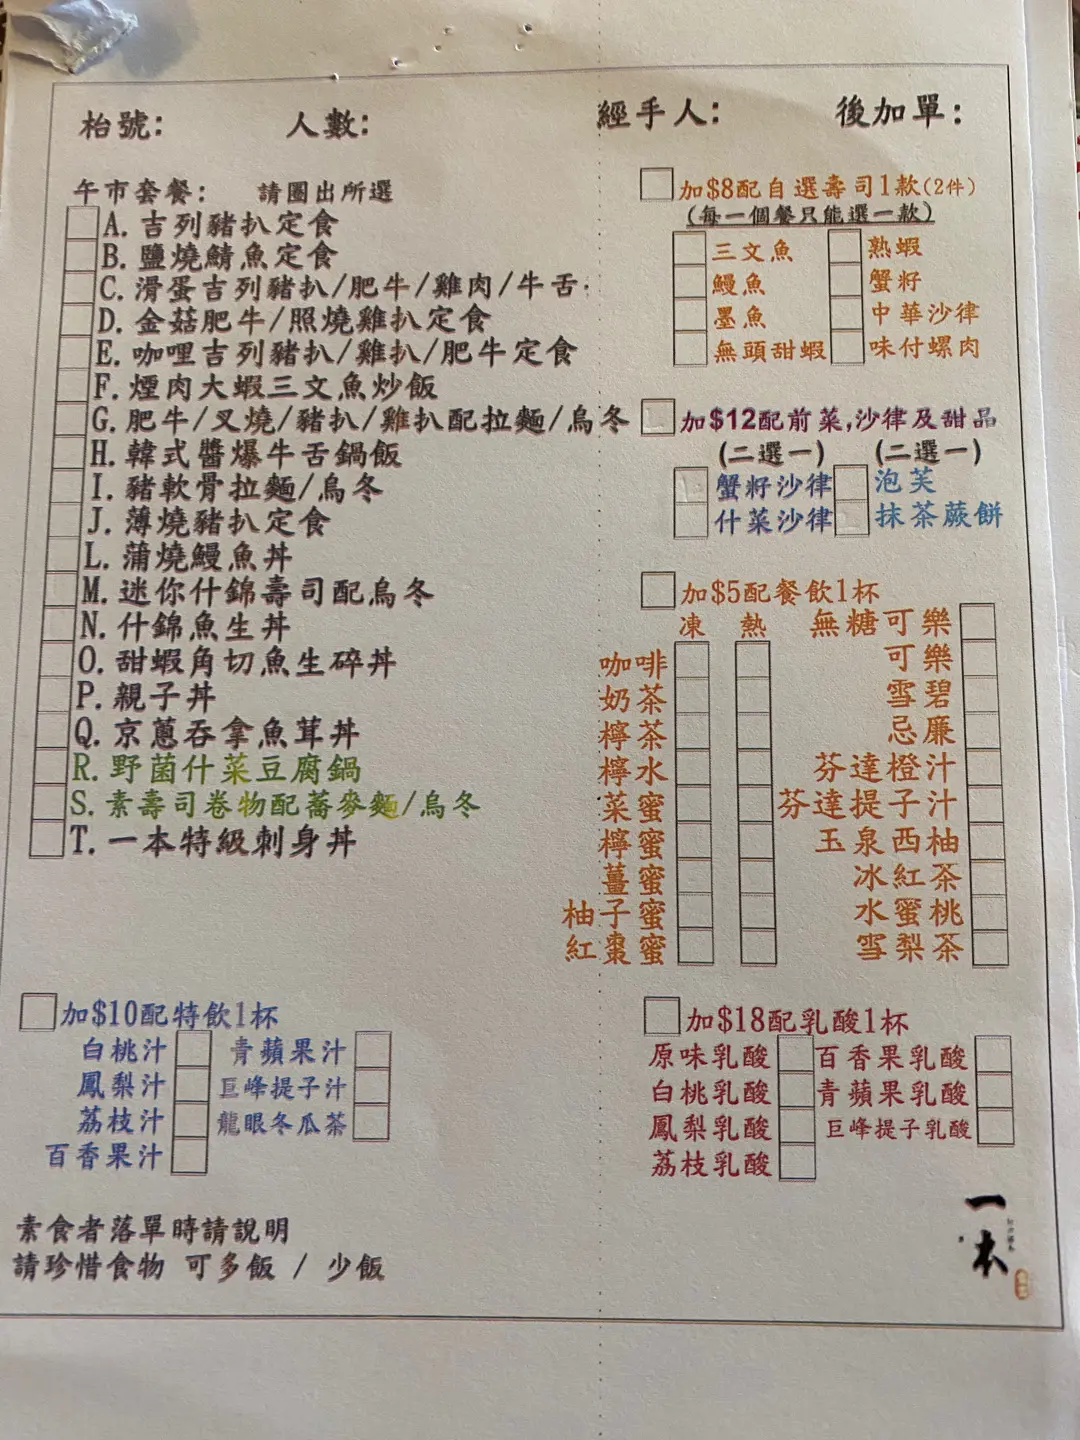 枱號： 人數： 經手人： 後加單：
午市套餐： 請圈出所選
A. 吉列豬扒定食
B. 鹽燒鯖魚定食
C. 滑蛋吉列豬扒/肥牛/雞肉/牛舌
D. 金菇肥牛/照燒雞扒定食
E. 咖哩吉列豬扒/雞扒/肥牛定食
F. 煙肉大蝦三文魚炒飯
G. 肥牛/叉燒/豬扒/雞扒配拉麵/烏冬
H. 韓式醬爆牛舌鍋飯
I. 豬軟骨拉麵/烏冬
J. 薄燒豬扒定食
L. 蒲燒鰻魚丼
M. 迷你什錦壽司配烏冬
N. 什錦魚生丼
O. 甜蝦角切魚生碎丼
P. 親子丼
Q. 京蔥吞拿魚茸丼
R. 野菌什菜豆腐鍋
S. 素壽司卷物配蕎麥麵/烏冬
T. 一本特級刺身丼
加$8配自選壽司1款(2件)
(每一個餐只能選一款)
三文魚 熟蝦
鰻魚 蟹籽
墨魚 中華沙律
無頭甜蝦 味付螺肉
加$12配前菜,沙律及甜品
(二選一) (二選一)
蟹籽沙律 泡芙
什菜沙律 抹茶蕨餅
加$5配餐飲1杯
凍 熱 無糖可樂
咖啡 可樂
奶茶 雪碧
檸茶 忌廉
檸水 芬達橙汁
菜蜜 芬達提子汁
檸蜜 玉泉西柚
薑蜜 冰紅茶
柚子蜜 水蜜桃
紅棗蜜 雪梨茶
加$10配特飲1杯
白桃汁 青蘋果汁
鳳梨汁 巨峰提子汁
荔枝汁 龍眼冬瓜茶
百香果汁
加$18配乳酸1杯
原味乳酸 百香果乳酸
白桃乳酸 青蘋果乳酸
鳳梨乳酸 巨峰提子乳酸
荔枝乳酸
素食者落單時請說明
請珍惜食物 可多飯 / 少飯
一本